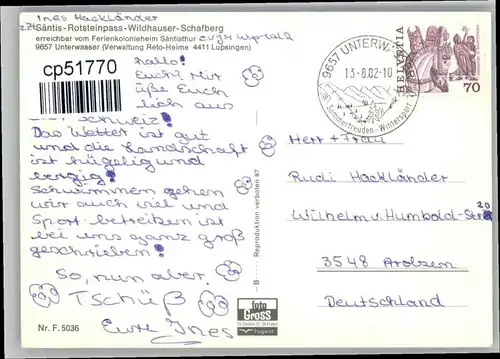 Ines Hackländer
Säntis-Rotsteinpass-Wildhauser-Schafberg
erreichbar vom Ferienkolonieheim Säntisthur CVJM
9657 Unterwasser (Verwaltung Reto-Heime 4411 Lupsingen)
cp51770
Hallo!
Euch! Mir
üße Euch
lich aus
Schweiz!
Das Wetter ist gut
und die Landschaft
ist hügelig und
bergig!
Schwimmen gehen
wir auch viel und
Sport betreiben ist
bei uns ganz groß
geschrieben!
So, nun aber
Tschüß
Eure Ines
Nr. F. 5036
B Reproduktion verboten 87
foto
Gross
St. Gallen
Flugbild
9657 UNTERWASSER
13-8.02-10
Sommerfreuden-Wintersport
HELVETIA
70
Herr + Frau
Rudi Hackländer
Wilhelm v. Humbold-Str. 20
3548 Arolsen
Deutschland